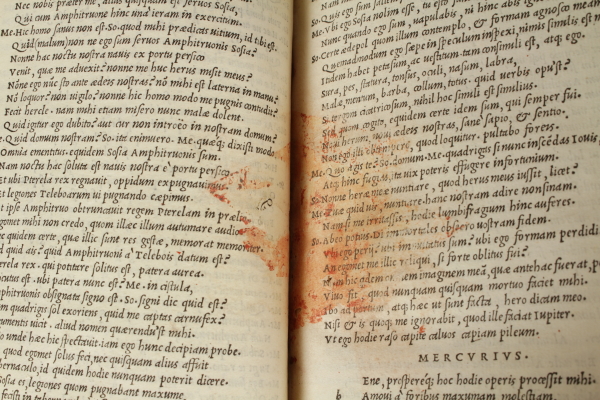 Nec nobis præter me, alius quisquam est seruos Sosia,
Qui cum Amphitruone hinc unà ieram in exercitum.
Me. Hic homo sanus non est. So. quod mihi prædicas uitium, id tibi est.
Quid (malum) non ne ego sum seruos Amphitruonis Sosia?
Nonne hac noctu nostra nauis ex portu persico
Venit, quæ me aduexit? nonne me huc herus misit meus?
Nõne ego nũc sto ante ædeis nostras? nõ mihi est laterna in manu?
Nõ loquor? non uigilo? nonne hic homo modo me pugnis contudit?
Fecit hercle. nam mihi etiam misero nunc malæ dolent.
Quid igitur ego dubito? aut cur non introëo in nostram domum?
Quid domum nostram? So. ita enimuero. Me. quæq; dixisti modo
Omnia ementitus. equidem Sosia Amphitruonis sum.
Nam noctu hac soluta est nauis nostra è portu persico.
Et ubi Pterela rex regnauit, oppidum expugnauimus
Et legiones Teleboarum ui pugnando cæpimus.
Et ipse Amphitruo obtruncauit regem Pterelam in prælio.
egomet mihi non credo, quom illæc illum autumare audio
ic quidem certe, quæ illic sunt res gestæ, memorat memoriter.
d quid ais? quid Amphitruoni à Telebois datum est?
erela rex. qui potitare solitus est, patera aurea.
ocutus est. ubi patera nunc est? Me. in cistula,
phitruonis obsignata signo est. So. signi dic quid est?
quadrigis sol exoriens, quid me captas carnufex?
umentis uicit. aliud nomen quærendũ'st mihi.
unde hæc hic spectauit. iam ego hunc decipiam probe.
quod egomet solus feci, nec quisquam alius affuit
bernaculo, id quidem nunquam poterit dicere.
Sosia es, legiones quom pugnabant maxume
fecisti in tabernaculo?
Quis ego sum saltem
Me. Vbi ego Sosia nolim esse, tu esto sanè
Nunc quando ego sum, uapulabis, ni hinc abis igno
So. Certe ædepol quom illum contemplo, & formam agnosco meam
Quemadmodum ego sæpe in speculum inspexi, nimis similis est mei.
Itidem habet petasum, ac uestitum. tam consimili est, atq; ego.
Sura, pes, statura, tonsus, oculi, nasum, labra,
Malæ, mentum, barba, collum, totus. quid uerbis opu'st?
Si tergum cicatricosum, nihil hoc simili est similius.
Sed quom cogito, equidem certe idem sum, qui semper fui.
Noui herum, noui ædeis nostras, sane sapio, & sentio.
Non ego illi obtempero, quod loquitur. pultabo foreis.
Me. Quo agis te? So. domum. Me. quadrigis si nunc inscẽdas Iouis,
Atq; hinc fugias, ita uix poteris effugere infortunium.
So. Nonne heræ meæ nuntiare, quod herus meus iussit, licet?
Me. Tuæ si quid uis, nuntiare. hanc nostram adire non sinam.
Nam si me irritassis, hodie lumbifragium hinc auferes.
So. Abeo potius. Di immortales obsecro uostram fidem.
Vbi ego perij? ubi immutatus sum? ubi ego formam perdidi
An egomet me illic reliqui, si forte oblitus fui?
Nam hic quidem omnem imaginem meã, quæ antehac fuerat, po
Viuo fit, quod nunquam quisquam mortuo faciet mihi.
Ibo ad portum, atq; hæc ut sunt facta, hero dicam meo.
Nisi & is quoq; me ignorabit, quod ille faciat Iupiter.
Vt ego hodie raso capite caluos capiam pileum.
MERCVRIVS.
Ene, prospereq́; hoc hodie operis processit mihi.
b Amoui à foribus maxumam molestiam.